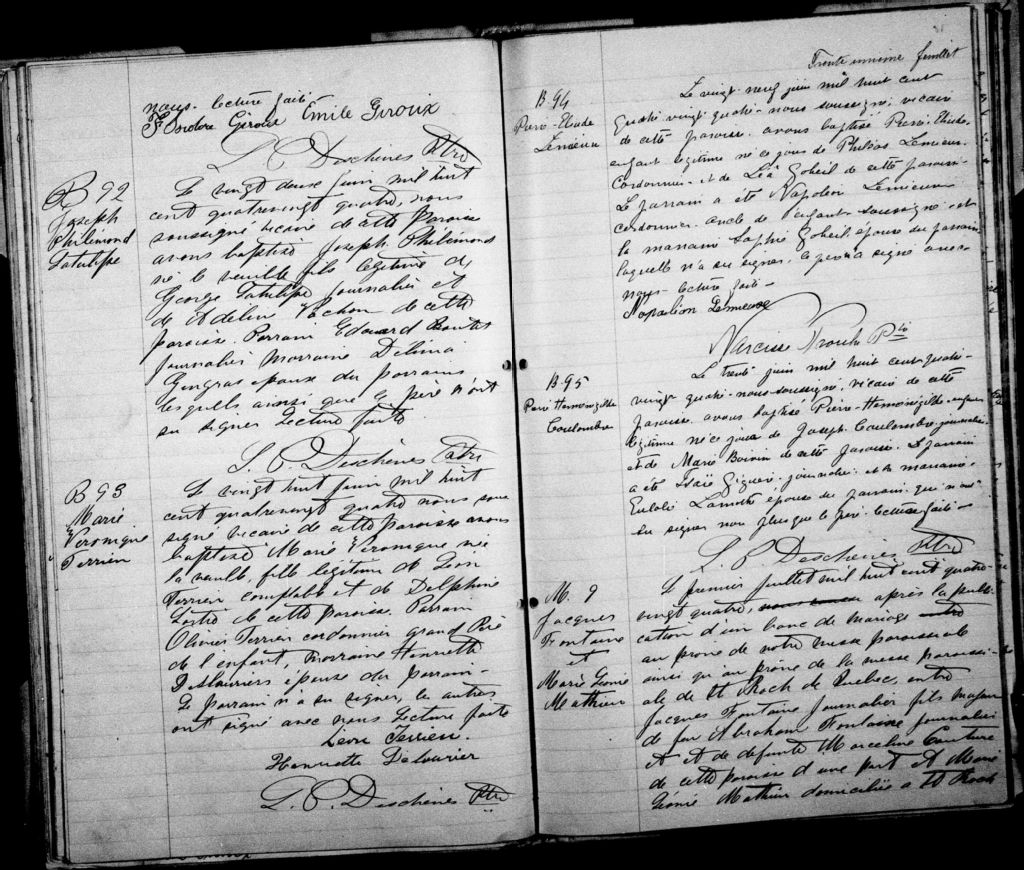 nous. lecture faite
F. Isidore Giroux Émile Giroux
L. P. Deschênes Ptre
B 92
Joseph
Philémond
Latulippe
Le vingt deux Juin mil huit
cent quatrevingt quatre, nous
soussigné vicaire de cette paroisse
avons baptisé Joseph Philémond
né la veille fils légitime de
George Latulippe journalier et
de Adeline Vachon de cette
paroisse. Parrain Edouard
journalier Marraine Delima
Gingras épouse du parrain
lesquels ainsi que le père n'ont
su signer Lecture faite
L. P. Deschênes Ptre
B 93
Marie
Véronique
Terrien
Le vingt huit Juin mil huit
cent quatrevingt quatre nous sous
signé vicaire de cette paroisse avons
baptisé Marie Veronique née
la veille, fille légitime de Léon
Terrien comptable et de Delphine
de cette paroisse. Parrain
Olivier Terrien cordonnier grand Père
de l'enfant, marraine Henriette
Deslauriers épouse du parrain.
Le parrain n'a su signer, les autres
ont signé avec nous Lecture faite
Léon Terrien.
Henriette Delaurier
L. P. Deschênes Ptre
Trente unième feuillet
B. 94
Pierre-Elude
Lemieux
Le vingt neuf juin mil huit cent
quatre-vingt-quatre-nous soussigné, vicaire
de cette paroisse avons baptisé Pierre-Elude,
enfant légitime né ce jour de Lemieux
cordonnier et de Léa Goheil de cette paroisse-
Le parrain a été Napoléon Lemieux
cordonnier oncle de l'enfant soussigné et
la marraine Sophie Goheil épouse du parrain
laquelle n'a su signer. le père a signé avec
nous-lecture faite-
Napoléon Lemieux
Narcisse Proulx Ptre
B. 95
Pierre Hermenegilde
Coulombe
Le trente juin mil huit cent-quatre-
vingt quatre-nous-soussigné, vicaire de cette
paroisse avons baptisé Pierre-Hermenegilde-enfant
légitime né ce jour de Joseph Coulombe journalier
et de Marie Boivin de cette paroisse. Le parrain
a été Isaïe Giguère, journalier et la marraine
Eulalie Lamothe épouse du parrain qui n'ont
su signer non plus que le père. lecture faite-
L. P. Deschênes Ptre
M. 9
Jacques
Fontaine
et
Marie Léonie
Mathieu
Le premier Juillet mil huit cent quatre-
vingt quatre, après la publi-
cation d'un banc de mariage
au prône de notre messe paroissiale
ainsi qu'au prône de la messe paroissi-
ale de St Roch de Québec, entre
Jacques Fontaine journalier fils majeur
de feu Abraham Fontaine journalier
et de défunte Marceline Couture
de cette paroisse d'une part et Marie
Léonie Mathieu domiciliée à St Roch